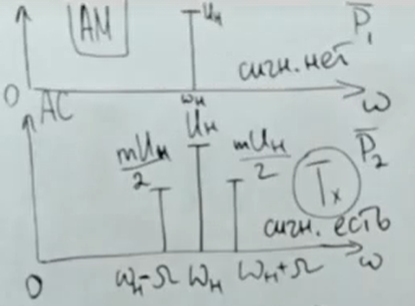 АМ
Uн
P̅₁
сигн. нет
0
ωн
ω
АС
Uн
P̅₂
mUн/2
mUн/2
Tx
сигн. есть
0
ωн-Ω
ωн
ωн+Ω
ω